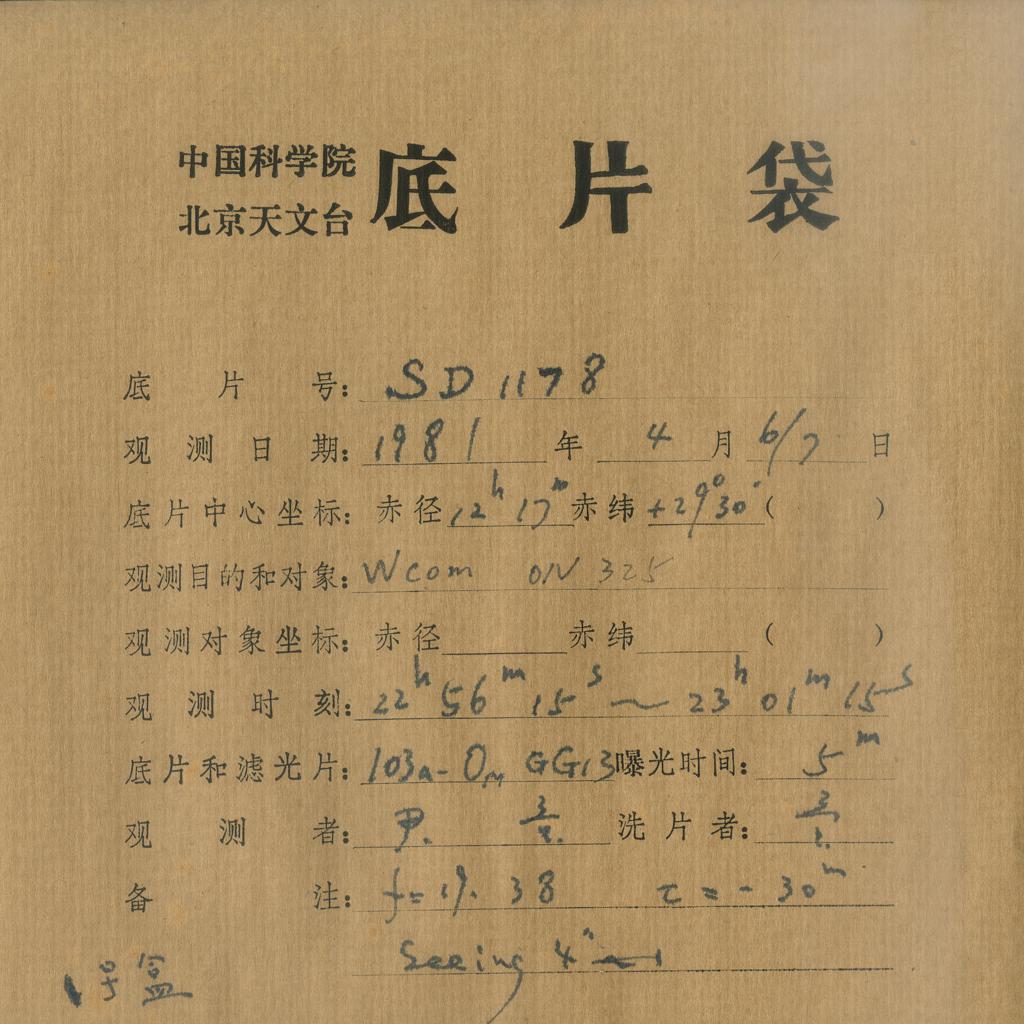 中国科学院
北京天文台
底片袋
底片号：SD 1178
观测日期：1981年4月6/7日
底片中心坐标：赤径12h17m赤纬+29°30′（ ）
观测目的和对象：Wcom ON 325
观测对象坐标：赤径 赤纬 （ ）
观测时刻：22h56m15s～23h01m15s
底片和滤光片：103a-O GG13曝光时间：5m
观测者： 洗片者：
备注：f=19.38 τ=-30m
Seeing 4″
1号盒